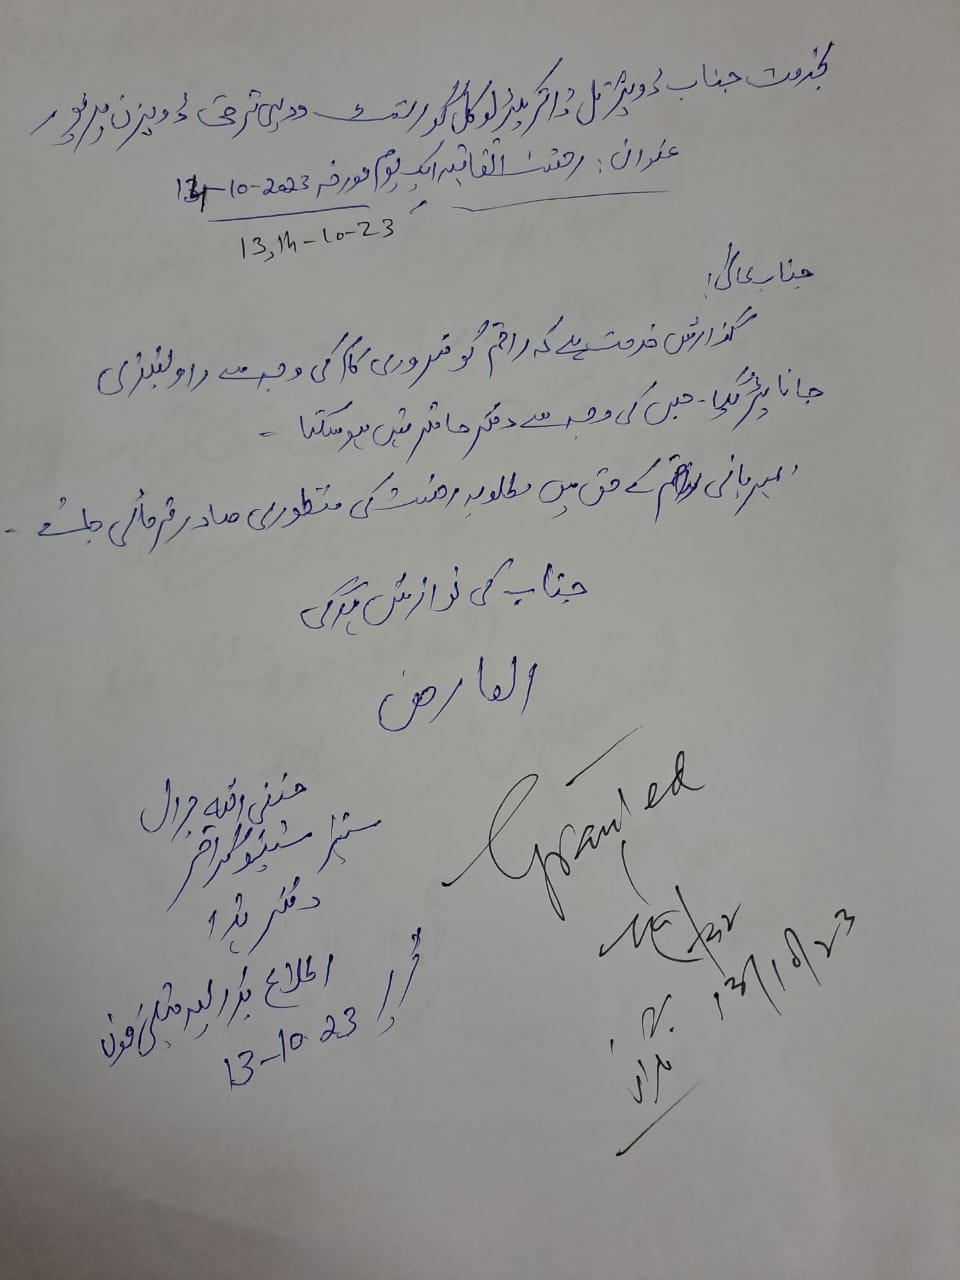 بخدمت جناب ڈویژنل ڈائریکٹر لوکل گورنمنٹ و دیہی ترقی ڈویژن میرپور
عنوان: رخصت اتفاقیہ ایک یوم مورخہ 13-10-2023
13,14-10-23
جناب عالی!
گذارش خدمت ہے کہ راقم کو ضروری کام کی وجہ سے راولپنڈی
جانا پڑ گیا۔ جس کی وجہ سے دفتر حاضر نہیں ہو سکتا ۔
مہربانی راقم کے حق میں مطلوبہ رخصت کی منظوری صادر فرمائی جائے ۔
جناب کی نوازش ہوگی
العارض
جرال
سینئر سٹینوگرافر
دفتر ہذا
اطلاع بذریعہ ٹیلی فون
تحریر 13-10-23
Granted
13/10/23